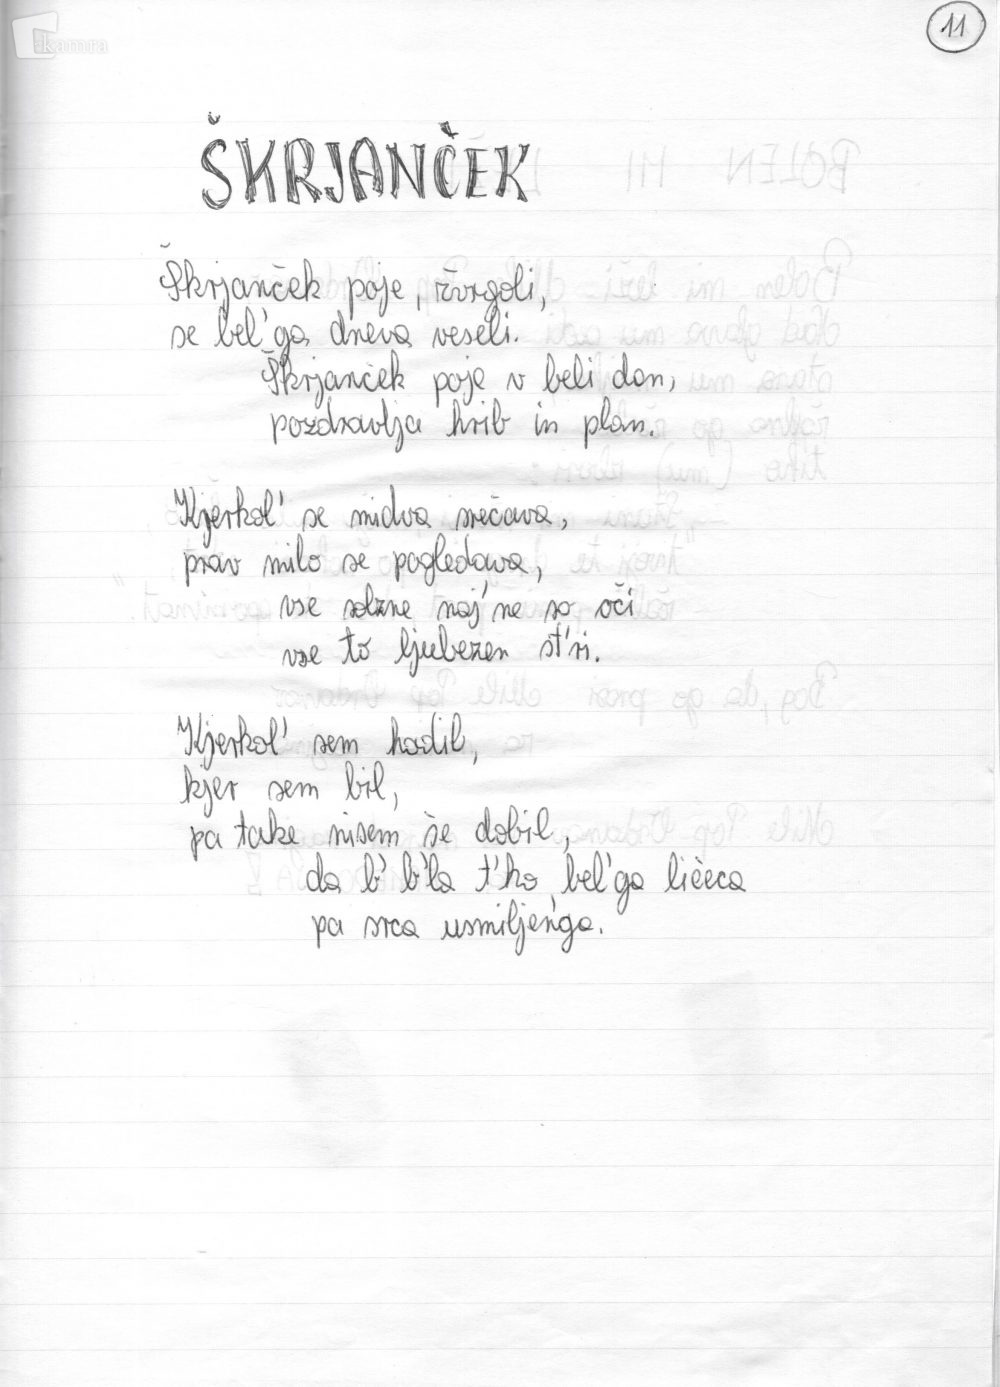 kamra
11
ŠKRJANČEK
Škrjanček poje, žvrgoli,
se bel'ga dneva veseli.
Škrjanček poje v beli dan,
pozdravlja hrib in plan.
Kjerkol' se midva srečava,
prav milo se pogledava,
vse solzne naj'ne so oči
vse to ljubezen st'ri.
Kjerkol' sem hodil,
kjer sem bil,
pa take nisem še dobil,
da b' b'la t'ko bel'ga liččca
pa srca usmiljen'ga.